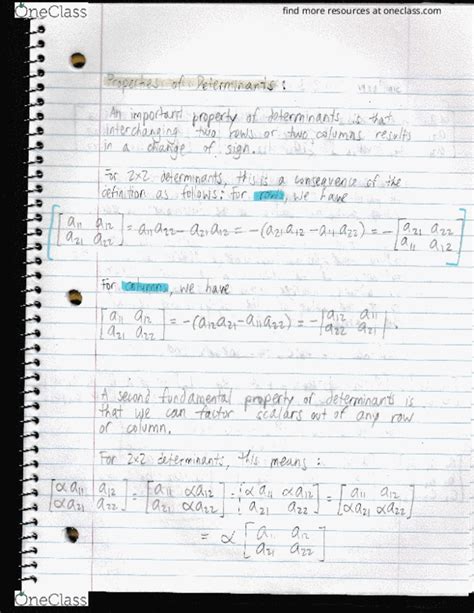 OneClass
find more resources at oneclass.com
Properties of Determinants:
An important property of determinants is that
interchanging two rows or two columns results
in a change of sign.
For 2x2 determinants, this is a consequence of the
definition as follows: For rows, we have
[a11 a12
a21 a22] = a11a22 - a21a12 = -(a21a12 - a11a22) = -[a21 a22
a11 a12]
For columns, we have
[a11 a12
a21 a22] = -(a12a21 - a11a22) = -|a12 a11
a22 a21|.
A second fundamental property of determinants is
that we can factor scalars out of any row
or column.
For 2x2 determinants, this means:
[αa11 a12
αa21 a22] = [a11 αa12
a21 αa22] = [αa11 αa12
a21 a22] = [a11 a12
αa21 αa22]
= α[a11 a12
a21 a22]
OneClass